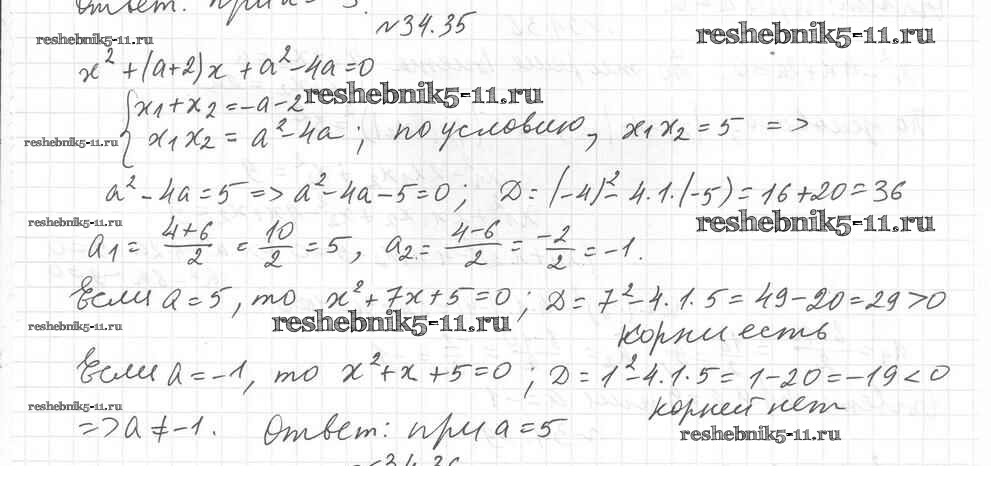 Ответ: при a = 3.
№34.35
reshebnik5-11.ru reshebnik5-11.ru
x² + (a+2)x + a² - 4a = 0
x₁ + x₂ = -a - 2 reshebnik5-11.ru
reshebnik5-11.ru x₁x₂ = a² - 4a; по условию, x₁x₂ = 5 =>
a² - 4a = 5 => a² - 4a - 5 = 0; D = (-4)² - 4·1·(-5) = 16 + 20 = 36
reshebnik5-11.ru reshebnik5-11.ru
a₁ = (4+6)/2 = 10/2 = 5, a₂ = (4-6)/2 = -2/2 = -1.
Если a = 5, то x² + 7x + 5 = 0; D = 7² - 4·1·5 = 49 - 20 = 29 > 0
reshebnik5-11.ru reshebnik5-11.ru корни есть
Если a = -1, то x² + x + 5 = 0; D = 1² - 4·1·5 = 1 - 20 = -19 < 0
reshebnik5-11.ru корней нет
=> a ≠ -1. Ответ: при a = 5
reshebnik5-11.ru